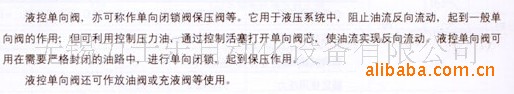 液控单向阀，亦可称作单向闭锁阀保压阀等。它用于液压系统中，阻止油流反向流动，起到一般单
向阀的作用；但可利用控制压力油，通过控制活塞打开单向阀芯，使油流实现反向流动。液控单向阀可
用在需要严格封闭的油路中，进行单向闭锁，起到保压作用。
液控单向阀还可作放油阀或充液阀等使用。
阿里巴巴
alibaba.com.cn